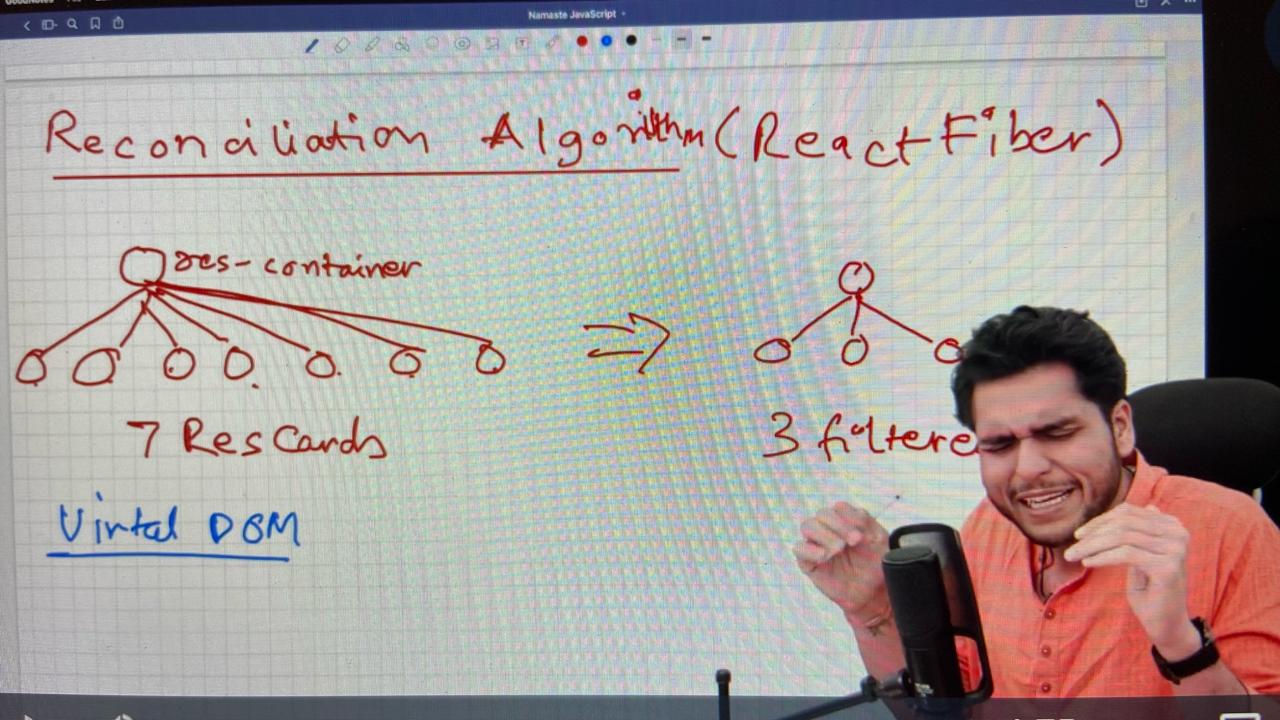 Namaste JavaScript
Reconciliation Algorithm (React Fiber)
res-container
7 Res Cards
3 filtere
Virtal DOM